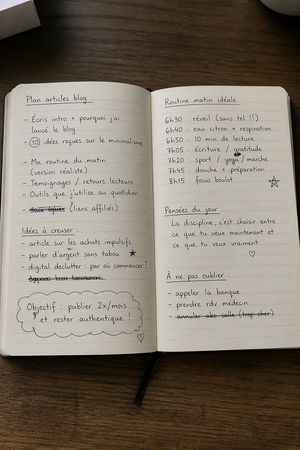 Plan articles blog
- Écris intro + pourquoi j'ai
lancé le blog
- 10 idées reçues sur le minimalisme
- Ma routine du matin
(version réaliste)
- Témoignages / retours lecteurs
- Outils que j'utilise au quotidien
(liens affiliés)
Idées à creuser :
- article sur les achats impulsifs
- parler d'argent sans tabou
- digital declutter : par où commencer ?
Objectif : publier 2x/mois
et rester authentique !
Routine matin idéale
6h30 : réveil (sans tel !!)
6h40 : eau citron + respiration
6h50 : 10 min de lecture
7h05 : écriture / gratitude
7h20 : sport / yoga / marche
7h45 : douche + préparation
8h15 : focus boulot
Pensées du jour
La discipline, c'est choisir entre
ce que tu veux maintenant et
ce que tu veux vraiment
À ne pas oublier :
- appeler la banque
- prendre rdv médecin
- annuler abo salle (trop cher)